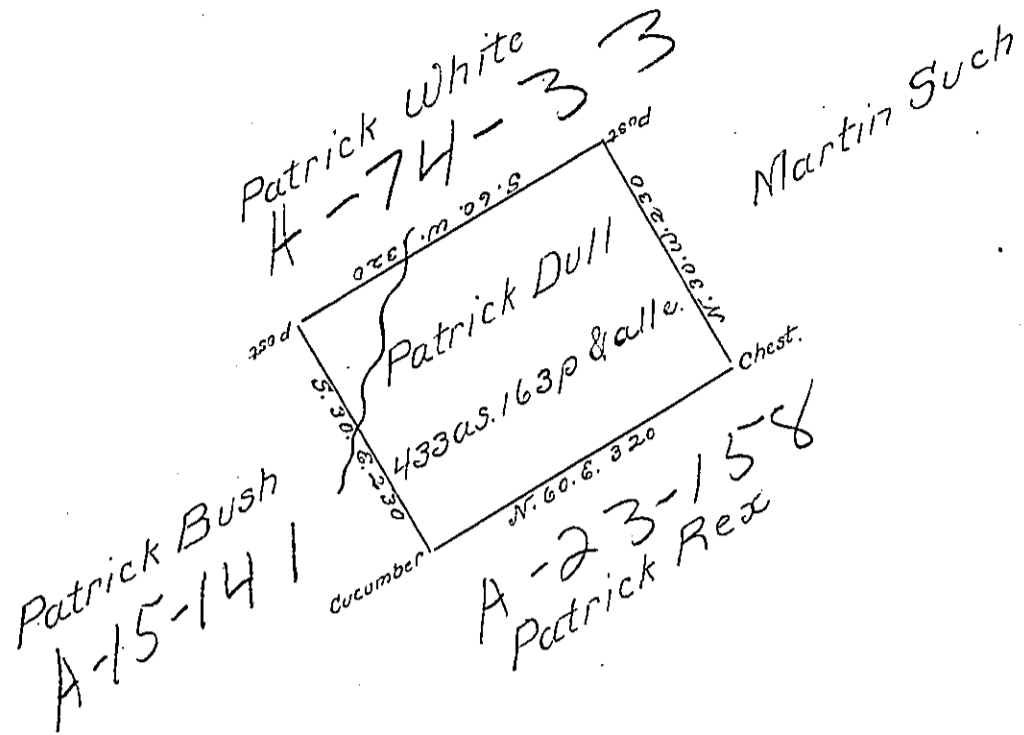 Patrick White
A-74-33
Martin Such
Post
S.60.W. 320
post
N.30.W.230
Patrick Dull
433as.163p &alle.
Chest.
S.30.E.230
N.60.E.320
Cucumber
Patrick Bush
A-15-141
A-23-158
Patrick Rex